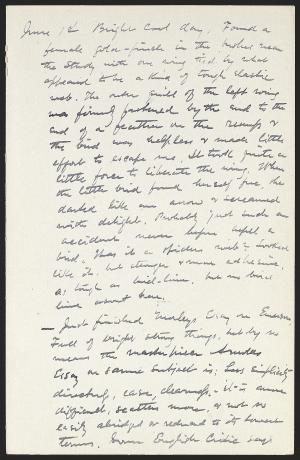 June 12 Bright cool day. Found a
female gold-finch in the bushes near
the study with one wing tied by what
appeared to be a kind of tough elastic
web. The outer quill of the left wing
was firmly fastened by the end to the
end of a feather on the rump &
the bird was helpless & made little
effort to escape me. It took quite a
little force to liberate the wing. When
the little bird found herself free, she
darted like an arrow & screamed
with delight. Probably just such an
accident never before befel a
bird. Was it a spiders web - looked
like it, but stronger & more adhesive.
as tough as bird-lime. but no bird
lime about here.
— Just finished Morleys Essay on Emerson.
Full of bright strong things, but by no
means the masterpiece Arnolds
Essay on same subject is; less simplicity
directness, ease, clearness, - it is more
diffused, scatters more, & not so
easily abridged or reduced to its lowest
terms. Some English Critic says